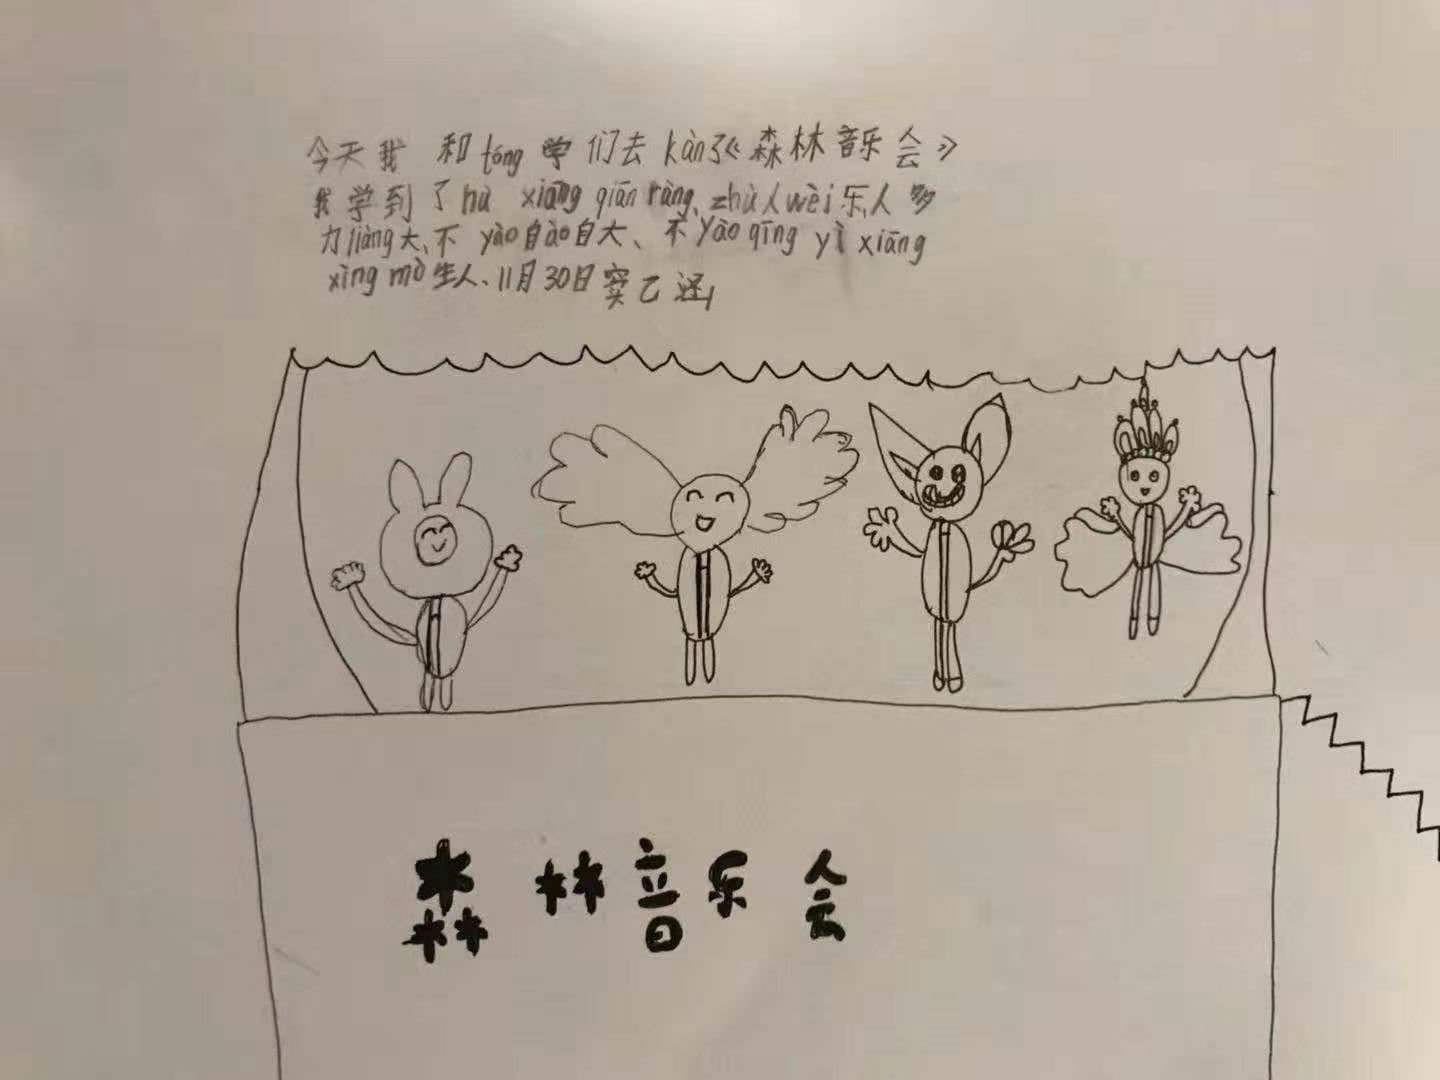 今天我 和tóng学们去kàn了《森林音乐会》
我学到了hù xiāng qiān ràng、zhù人wèi乐、人多
力liàng大、不 yào自ào自大、不yào qīng yì xiāng
xìng mò生人、11月30日窦乙
森林音乐会